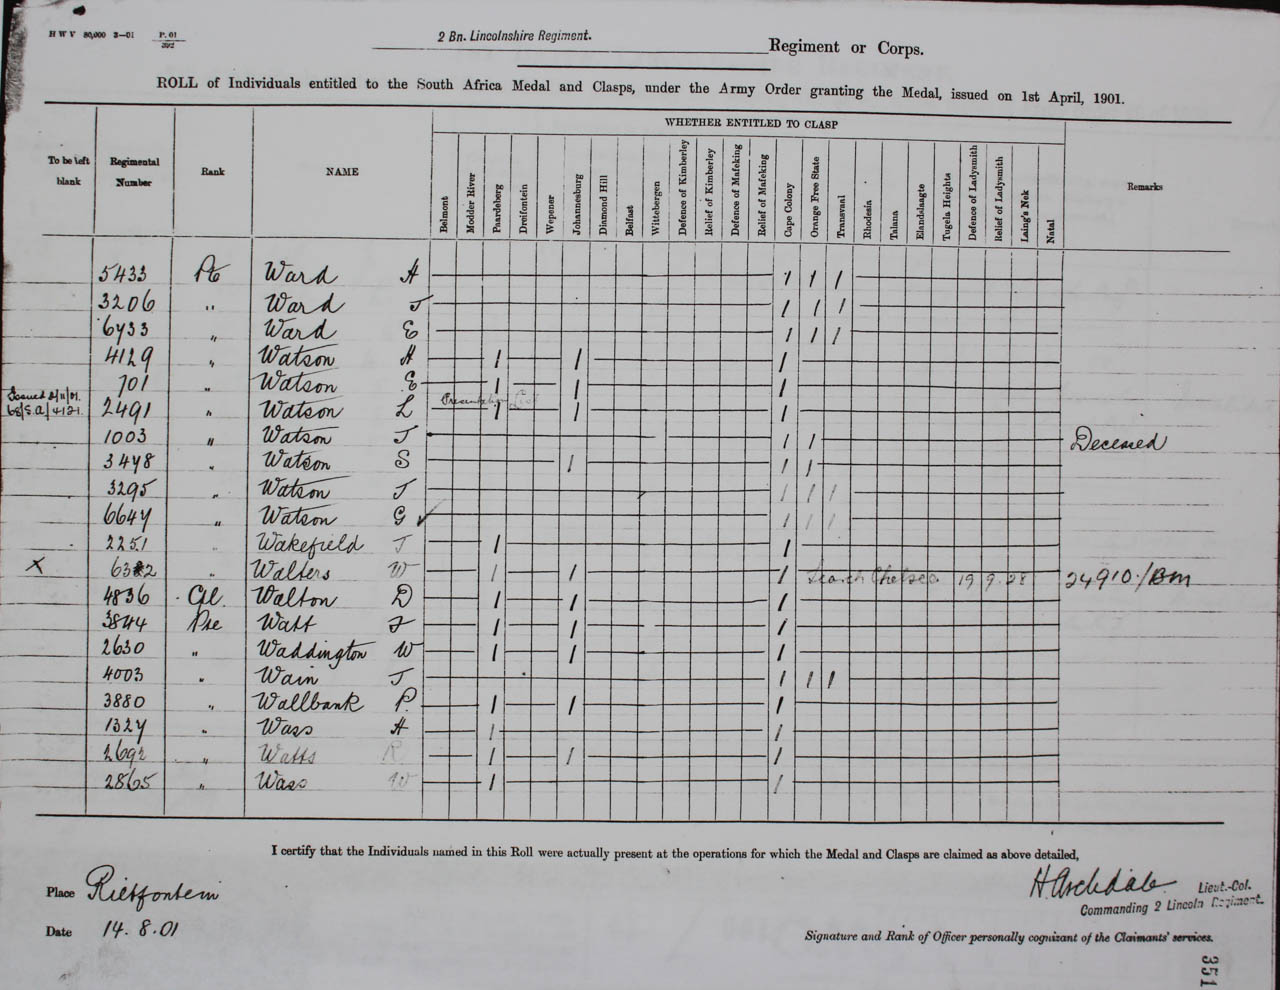 H W V 80,000 3—01 P. 01
2 Bn. Lincolnshire Regiment. Regiment or Corps.
ROLL of Individuals entitled to the South Africa Medal and Clasps, under the Army Order granting the Medal, issued on 1st April, 1901.
WHETHER ENTITLED TO CLASP
To be left blank Regimental Number Rank NAME Belmont Modder River Paardeberg Dreifontein Wepener Johannesburg Diamond Hill Belfast Wittebergen Defence of Kimberley Relief of Kimberley Defence of Mafeking Relief of Mafeking Cape Colony Orange Free State Transvaal Rhodesia Talana Elandslaagte Tugela Heights Defence of Ladysmith Relief of Ladysmith Laing's Nek Natal Remarks
5433 Pte Ward A / / /
3206 " Ward J / / /
6733 " Ward E / / /
4129 " Watson A / / /
701 " Watson E / / /
Issued
68/S.A/4121 2491 " Watson L Presentation List / / /
1003 " Watson J / / Deceased
3478 " Watson S / / /
3295 " Watson J / / /
6647 " Watson G ✓ / / /
2251 " Wakefield J / /
X " Walters W / / / Search Chelsea 19 9.28
4836 Cpl. Walton D / / /
3844 Pte Watt J / / /
2630 " Waddington W / / /
4003 " Wain J / / /
3880 " Wallbank P. / / /
1327 " Wass A / /
2692 " Watts R / / /
2865 " Wass W / /
I certify that the Individuals named in this Roll were actually present at the operations for which the Medal and Clasps are claimed as above detailed,
Place Rietfontein
H. Archdale Lieut.-Col.
Commanding 2 Lincoln Regiment.
Date 14.8.01
Signature and Rank of Officer personally cognizant of the Claimants' services.
351